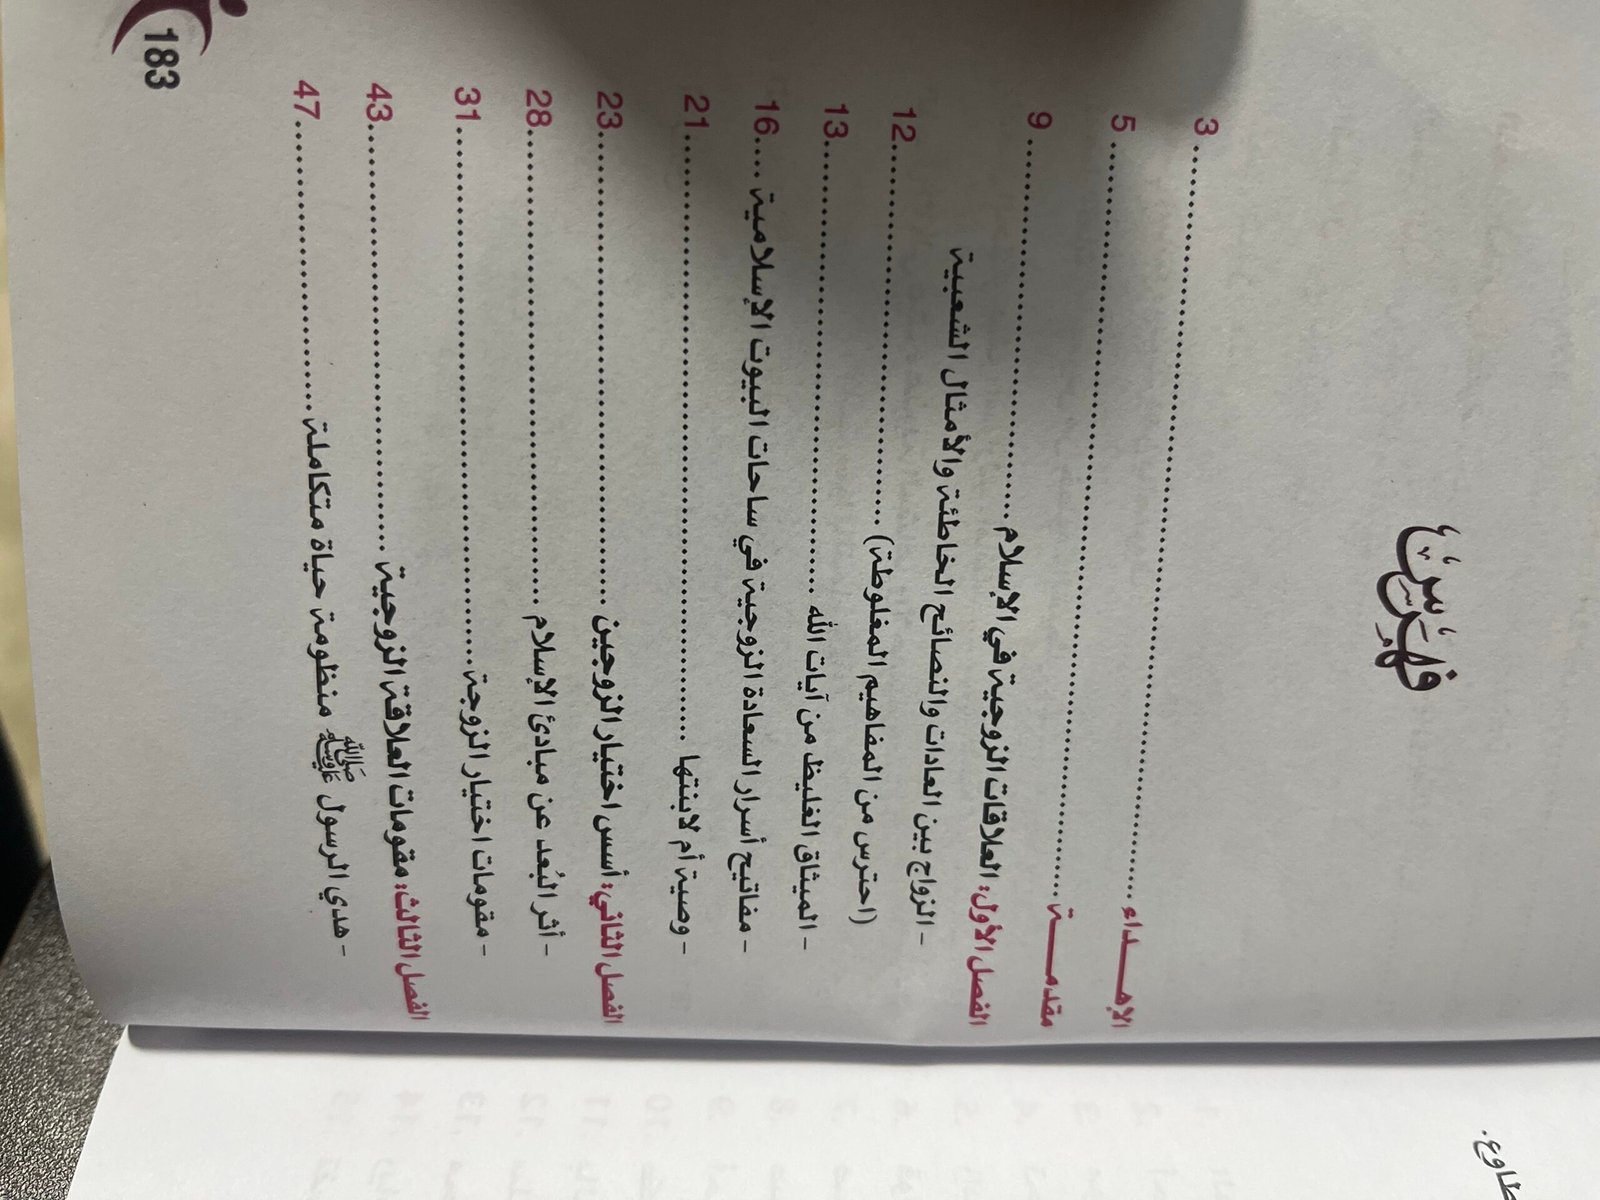 فِهْرِسْت
الإهـــداء ........ 3
مقدمـــة ........ 5
الفصل الأول: العلاقات الزوجية في الإسلام ........ 9
- الزواج بين العادات والنصائح الخاطئة والأمثال الشعبية
(احترس من المفاهيم المغلوطة) ........ 12
- الميثاق الغليظ من آيات الله ........ 13
- مفاتيح أسرار السعادة الزوجية في ساحات البيوت الإسلامية .... 16
- وصية أم لابنتها ........ 21
الفصل الثاني: أسس اختيار الزوجين ........ 23
- أثر البُعد عن مبادئ الإسلام ........ 28
- مقومات اختيار الزوجة ........ 31
الفصل الثالث: مقومات العلاقة الزوجية ........ 43
- هدي الرسول ﷺ منظومة حياة متكاملة ........ 47
183